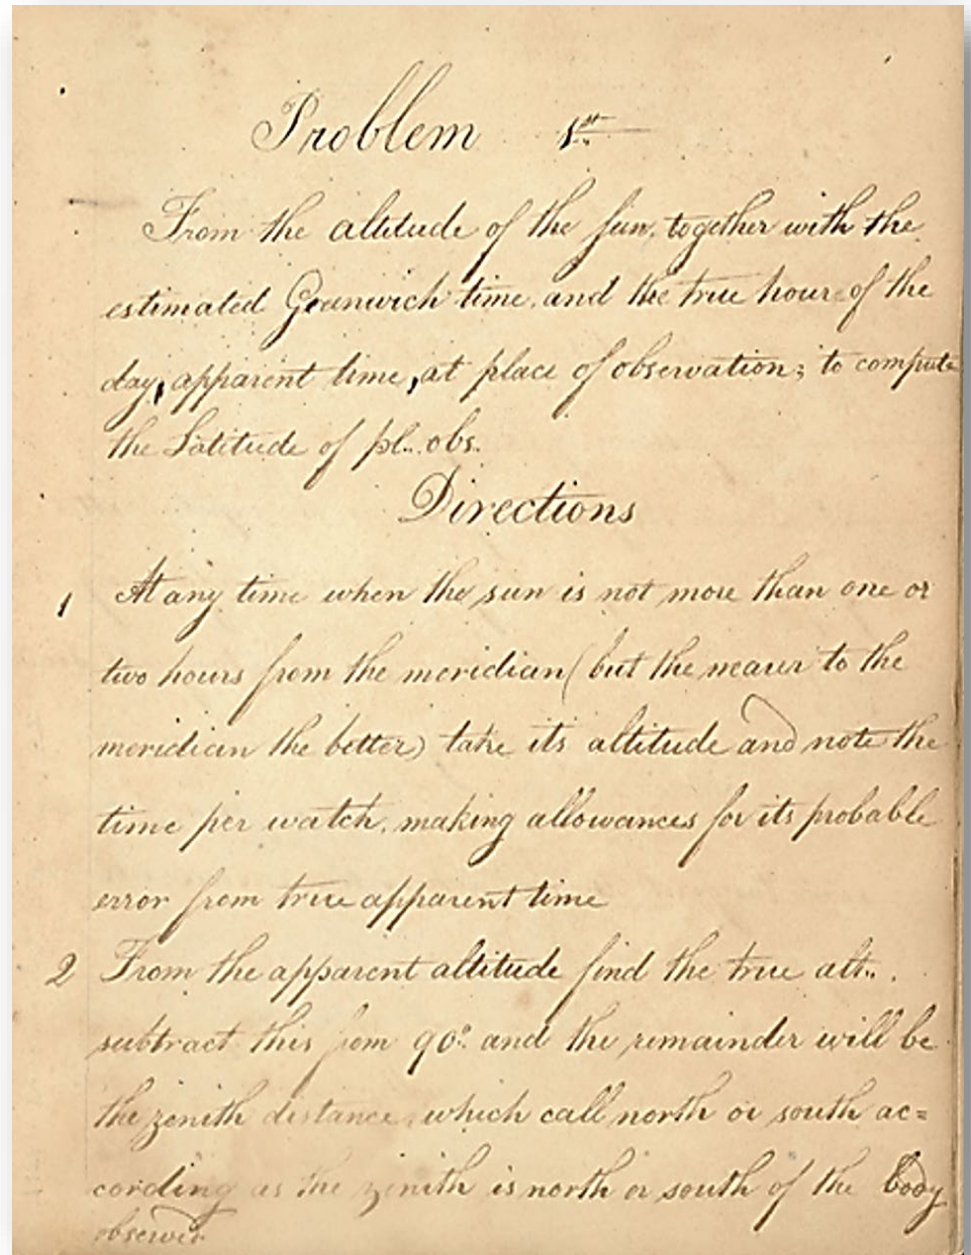 Problem 1st
From the altitude of the sun, together with the
estimated Greenwich time, and the true hour of the
day, apparent time, at place of observation; to compute
the Latitude of pl.. obs.
Directions
1 At any time when the sun is not more than one or
two hours from the meridian (but the nearer to the
meridian the better) take its altitude and note the
time per watch, making allowances for its probable
error from true apparent time
2 From the apparent altitude find the true alt..
subtract this from 90° and the remainder will be
the zenith distance, which call north or south ac=
cording as the zenith is north or south of the body
observed